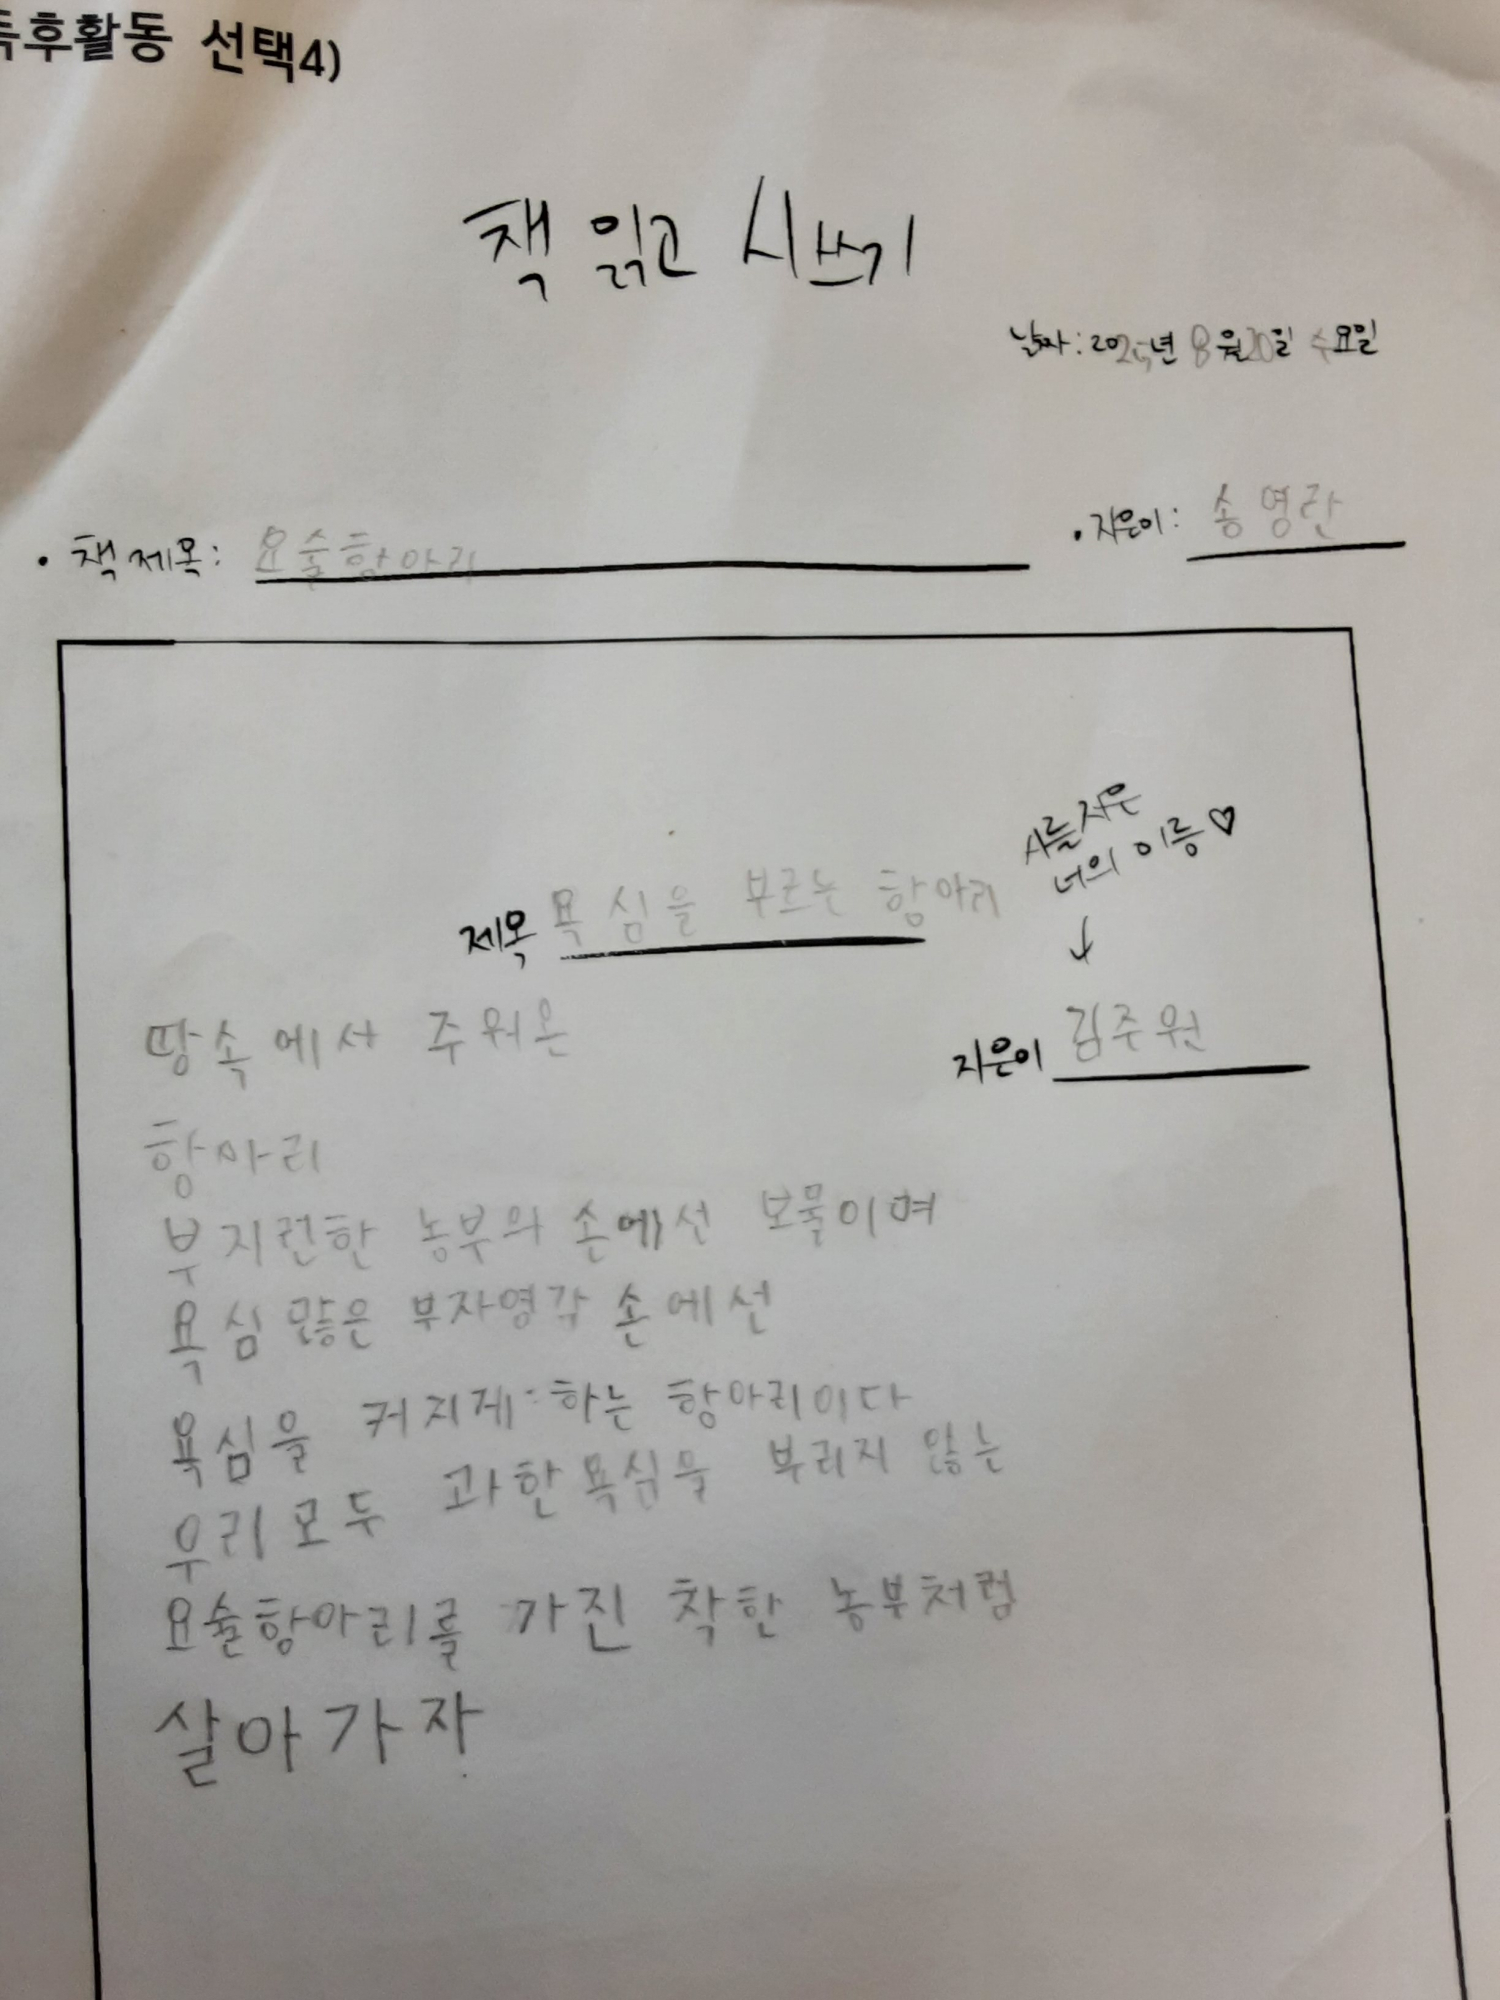 독후활동 선택4)
책 읽고 시쓰기
날짜: 2025년 8월 20일 수요일
• 책 제목: 요술항아리
• 지은이: 송영란
시를 지은
너의 이름♡
↓
제목 욕심을 부르는 항아리
지은이 김주원
땅속에서 주워온
항아리
부지런한 농부의 손에선 보물이며
욕심많은 부자영감 손에선
욕심을 커지게 하는 항아리이다
우리모두 과한욕심을 부리지 않는
요술항아리를 가진 착한 농부처럼
살아가자